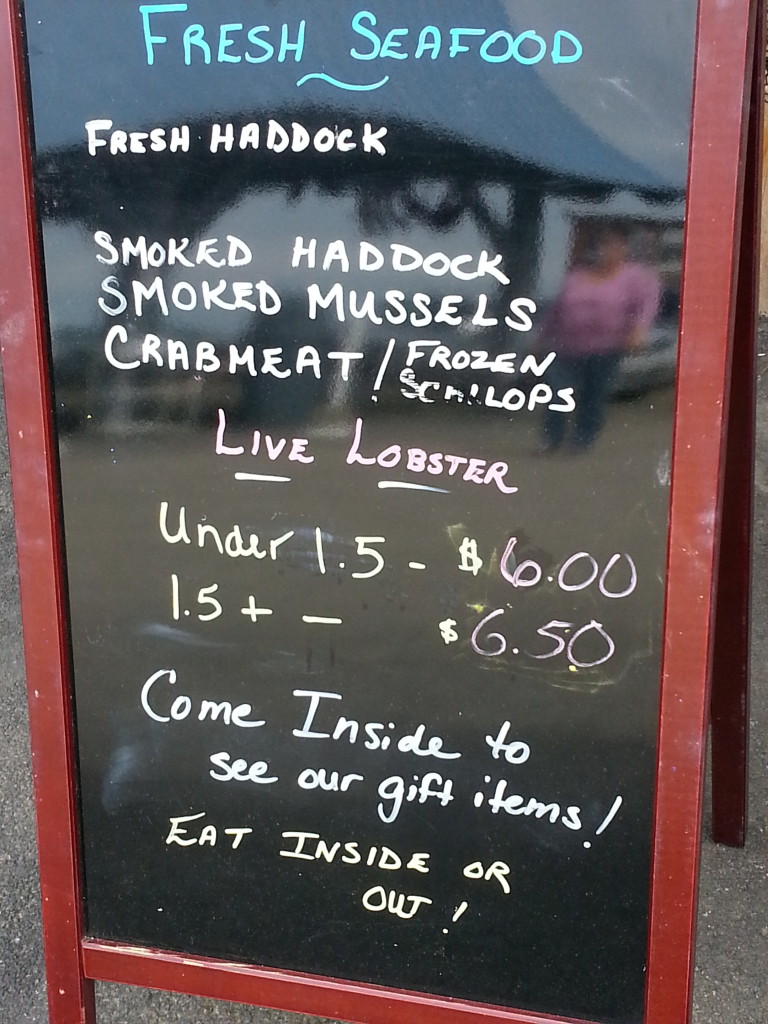 FRESH SEAFOOD
FRESH HADDOCK
SMOKED HADDOCK
SMOKED MUSSELS
CRABMEAT / FROZEN SCALLOPS
LIVE LOBSTER
Under 1.5 - $6.00
1.5 + - $6.50
Come Inside to
see our gift items!
EAT INSIDE OR
OUT!